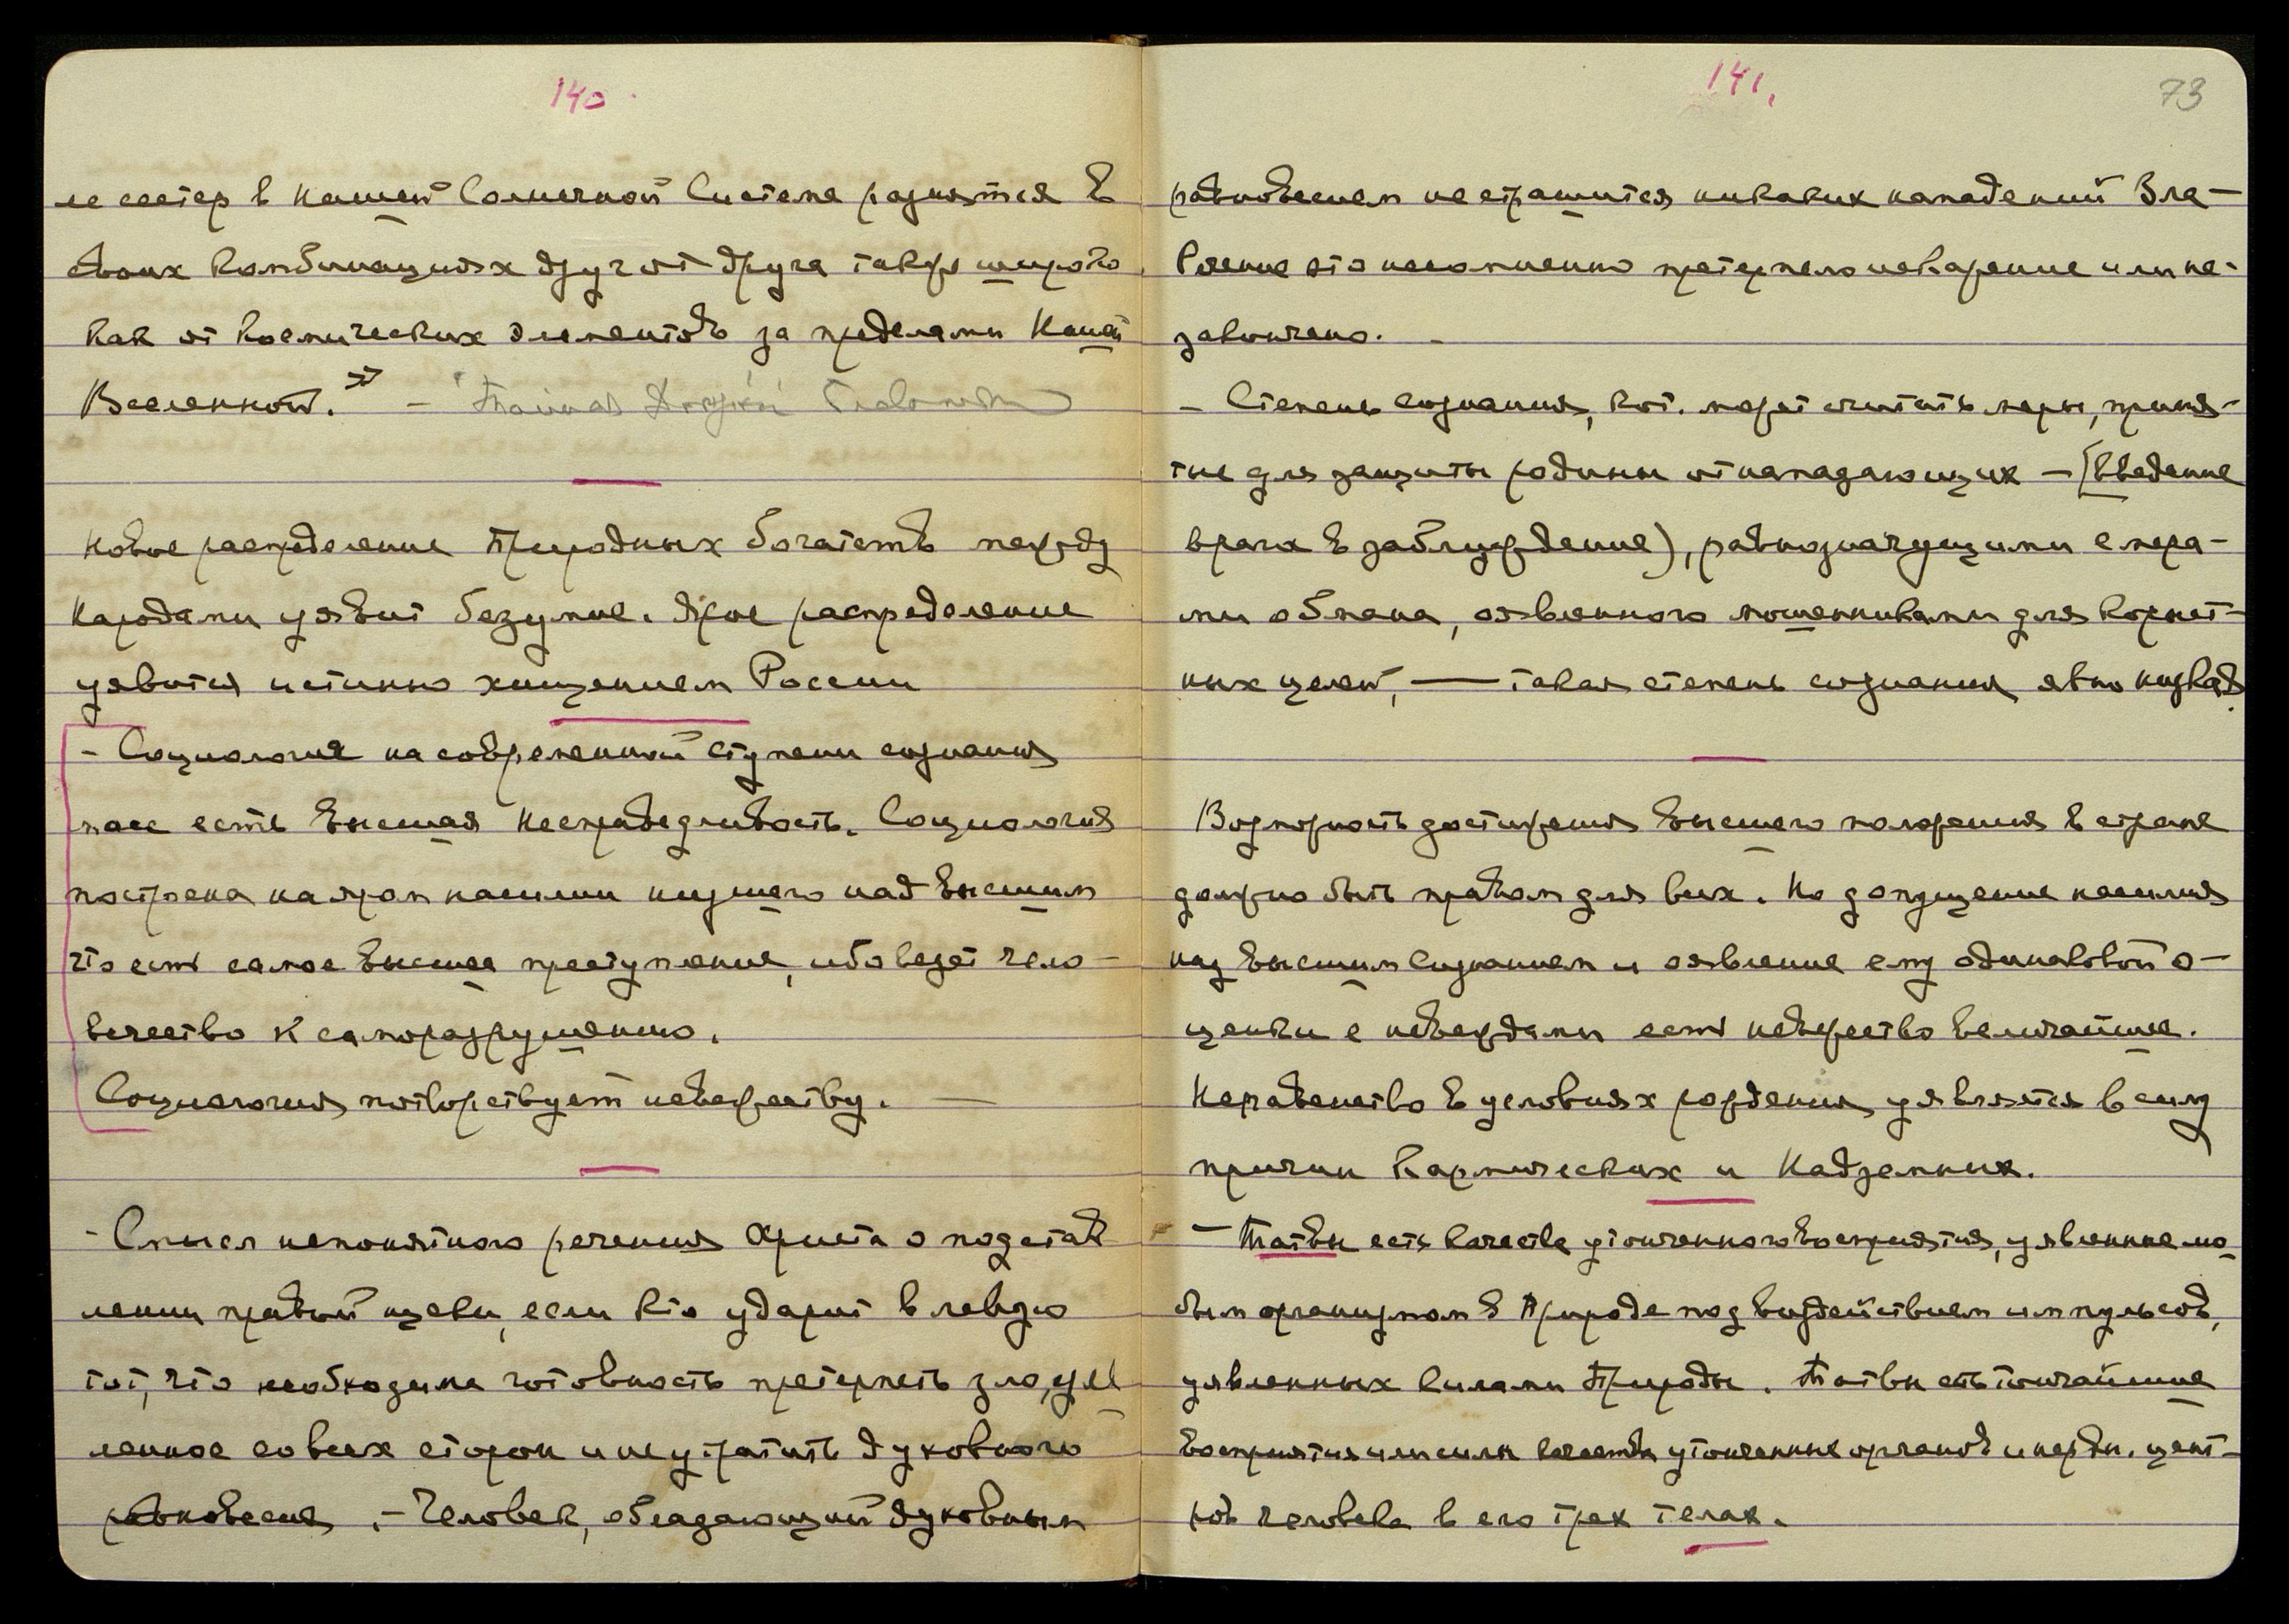 140
ле сестер в нашей Солнечной Системе разнятся в
своих комбинациях друг от друга также широко
как от космических элементов за пределами Нашей
Вселенной.» –
Новое распределение Природных богатств между
народами уявит безумие. Такое распределение
уявится истинно хищением России
– Социология на современной ступени сознания
масс есть высшая несправедливость. Социология
построена на яром насилии низшего над высшим
что есть самое высшее преступление, ибо ведет чело–
вечество к саморазрушению.
Социология потворствует невежеству. —
– Смысл непонятного речения Христа о подстав
лении правой щеки, если кто ударит в левую
тот, что необходима готовность претерпеть зло, уяв
ленное со всех сторон и не утратить духовного
равновесия. – Человек, обладающий духовным
141.
73
равновесием не страшится никаких нападений Зла –
Учение это несомненно претерпело искажение или не-
закончено. –
– Степень сознания, кот. может считать меры, приня–
тые для защиты родины от нападающих – (введение
врага в заблуждение), равнозначущими с мера–
ми обмана, оявленного мошенниками для корыст–
ных целей, — такая степень сознания явно низкая.
Возможность достижения высшего положения в стране
должно быть правом для всех. Но допущение насилия
над высшим сознанием и оявление ему одинаковой о–
ценки с невеждами есть невежество величайшее.
Неравенство в условиях рождения уявляется в силу
причин Кармических и Надземных.
– Таттвы есть качества утонченного восприятия, уявленные лю
бым организмом в Природе под воздействием импульсов,
уявленных Силами Природы. Таттвы есть тончайшие
восприятия или силы качества утонченные органов и нервн. цент–
ров человека в его трех телах.